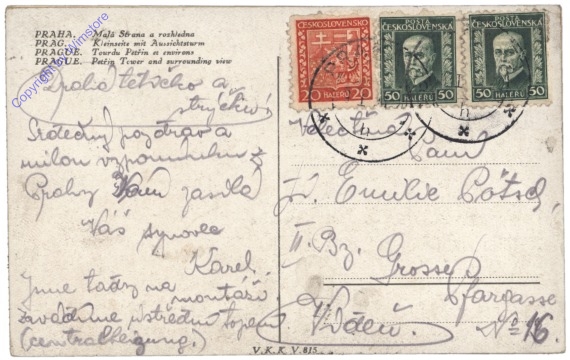 PRAHA. Malá Strana a rozhledna
PRAG. Kleinseite mit Aussichtsturm
PRAGUE. Tourdu Petřin et environs
PRAGUE. Petřin Tower and surrounding view
Copyright by filmstore
ČESKOSLOVENSKO
20 HALÉŘŮ 20
POŠTA
ČESKOSLOVENSKO
50 HALÉŘŮ 50
POŠTA
ČESKOSLOVENSKO
50 HALÉŘŮ 50
Drahá tetičko a
strýčku!
Srdečný pozdrav a
milou vzpomínku z
Prahy Vám zasílá
Váš synovec
Karel.
Jsme tady na
montáži
zavádíme ústřední topení
(centralheizung.)
Velectěná
Paní
Emilie Pötsch
II. Bz. Grosse
Pfargasse
Vídeň. No 16.
V.K.K.V. 815